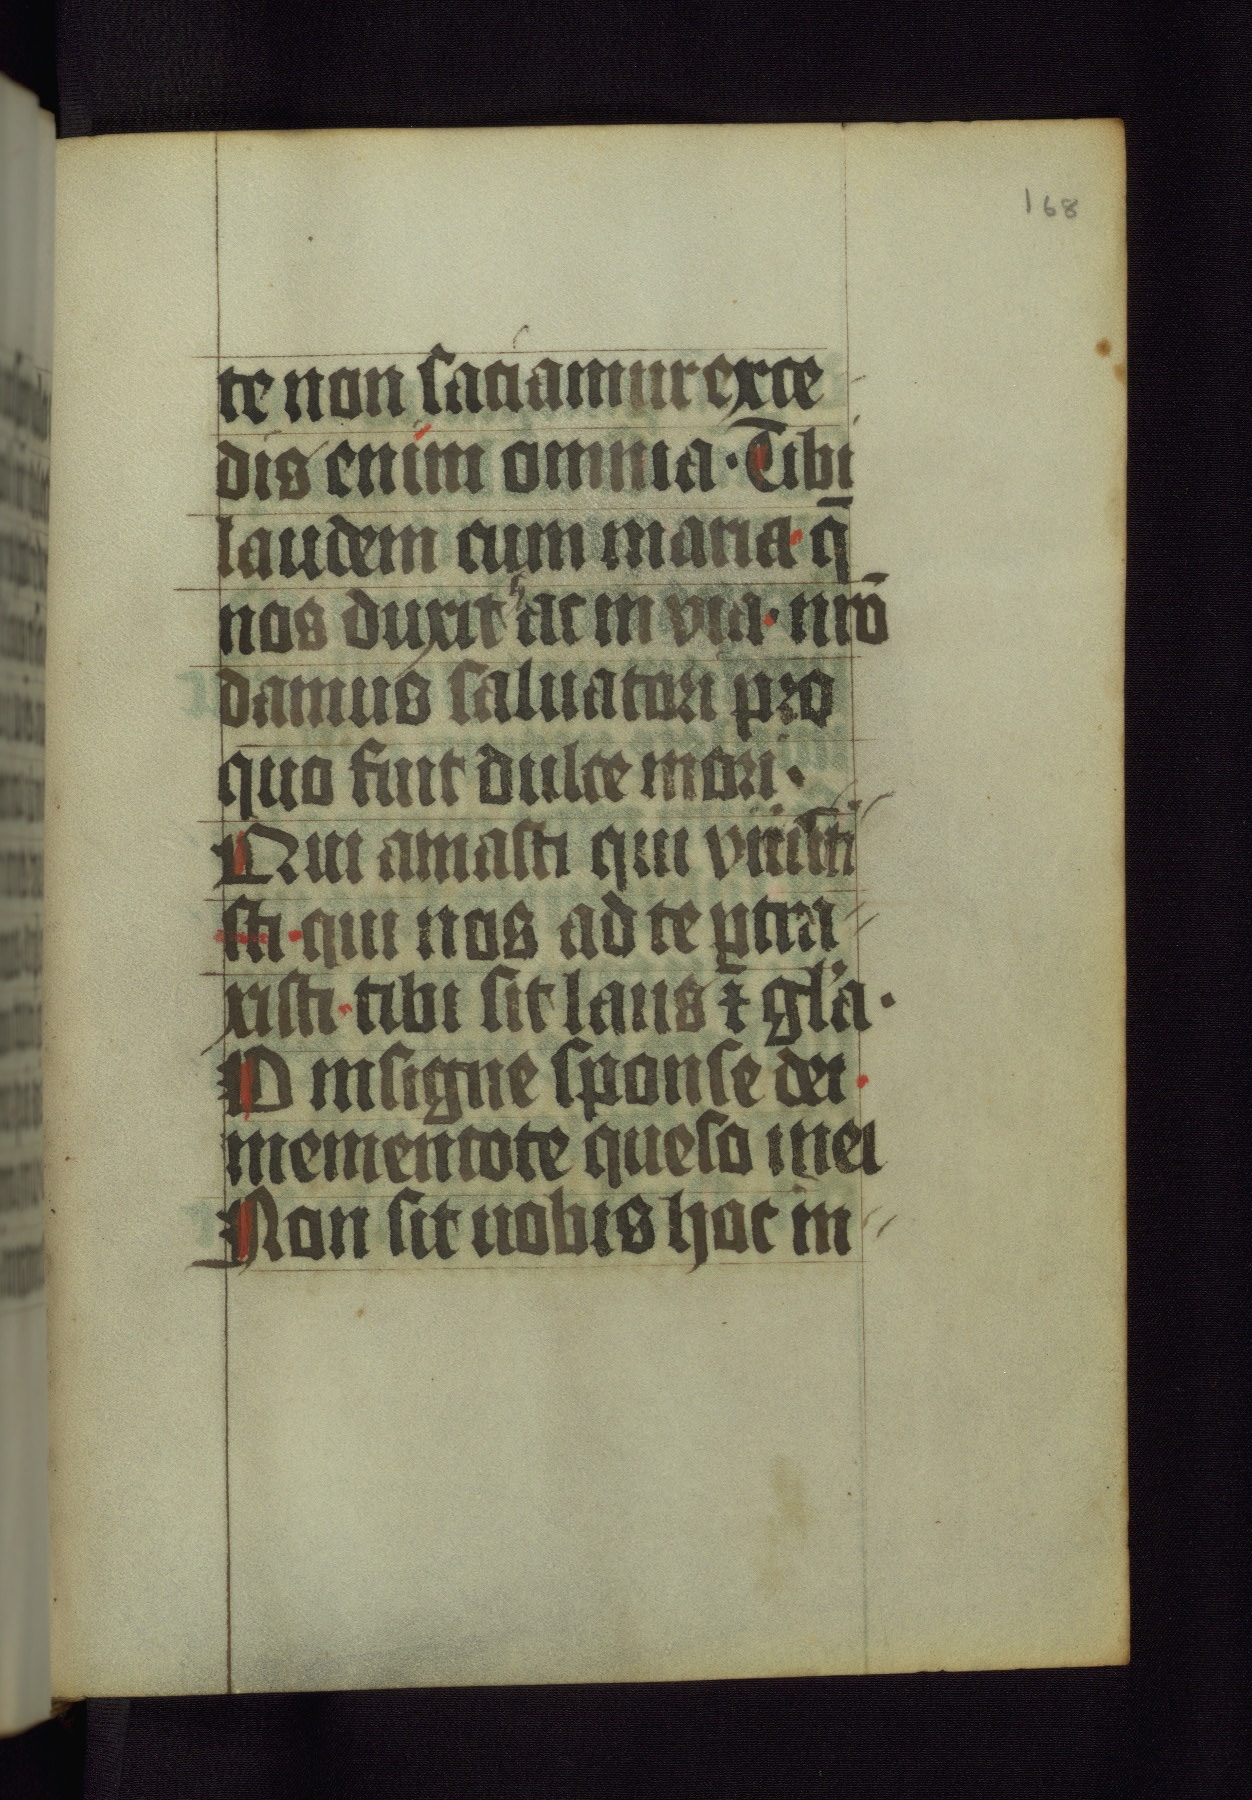 168
te non saciamur exce
dis enim omnia · Tibi
laudem cum maria · q̄
nos duxit hac in via · nr̄o
damus saluatori pro
quo fuit dulce mori ·
Qui amasti qui
sti · qui nos ad te ꝑtra
xisti · tibi sit laus ⁊ gl'a ·
O insigne sponse dei ·
mementote queso mei
Non sit uobis hoc in